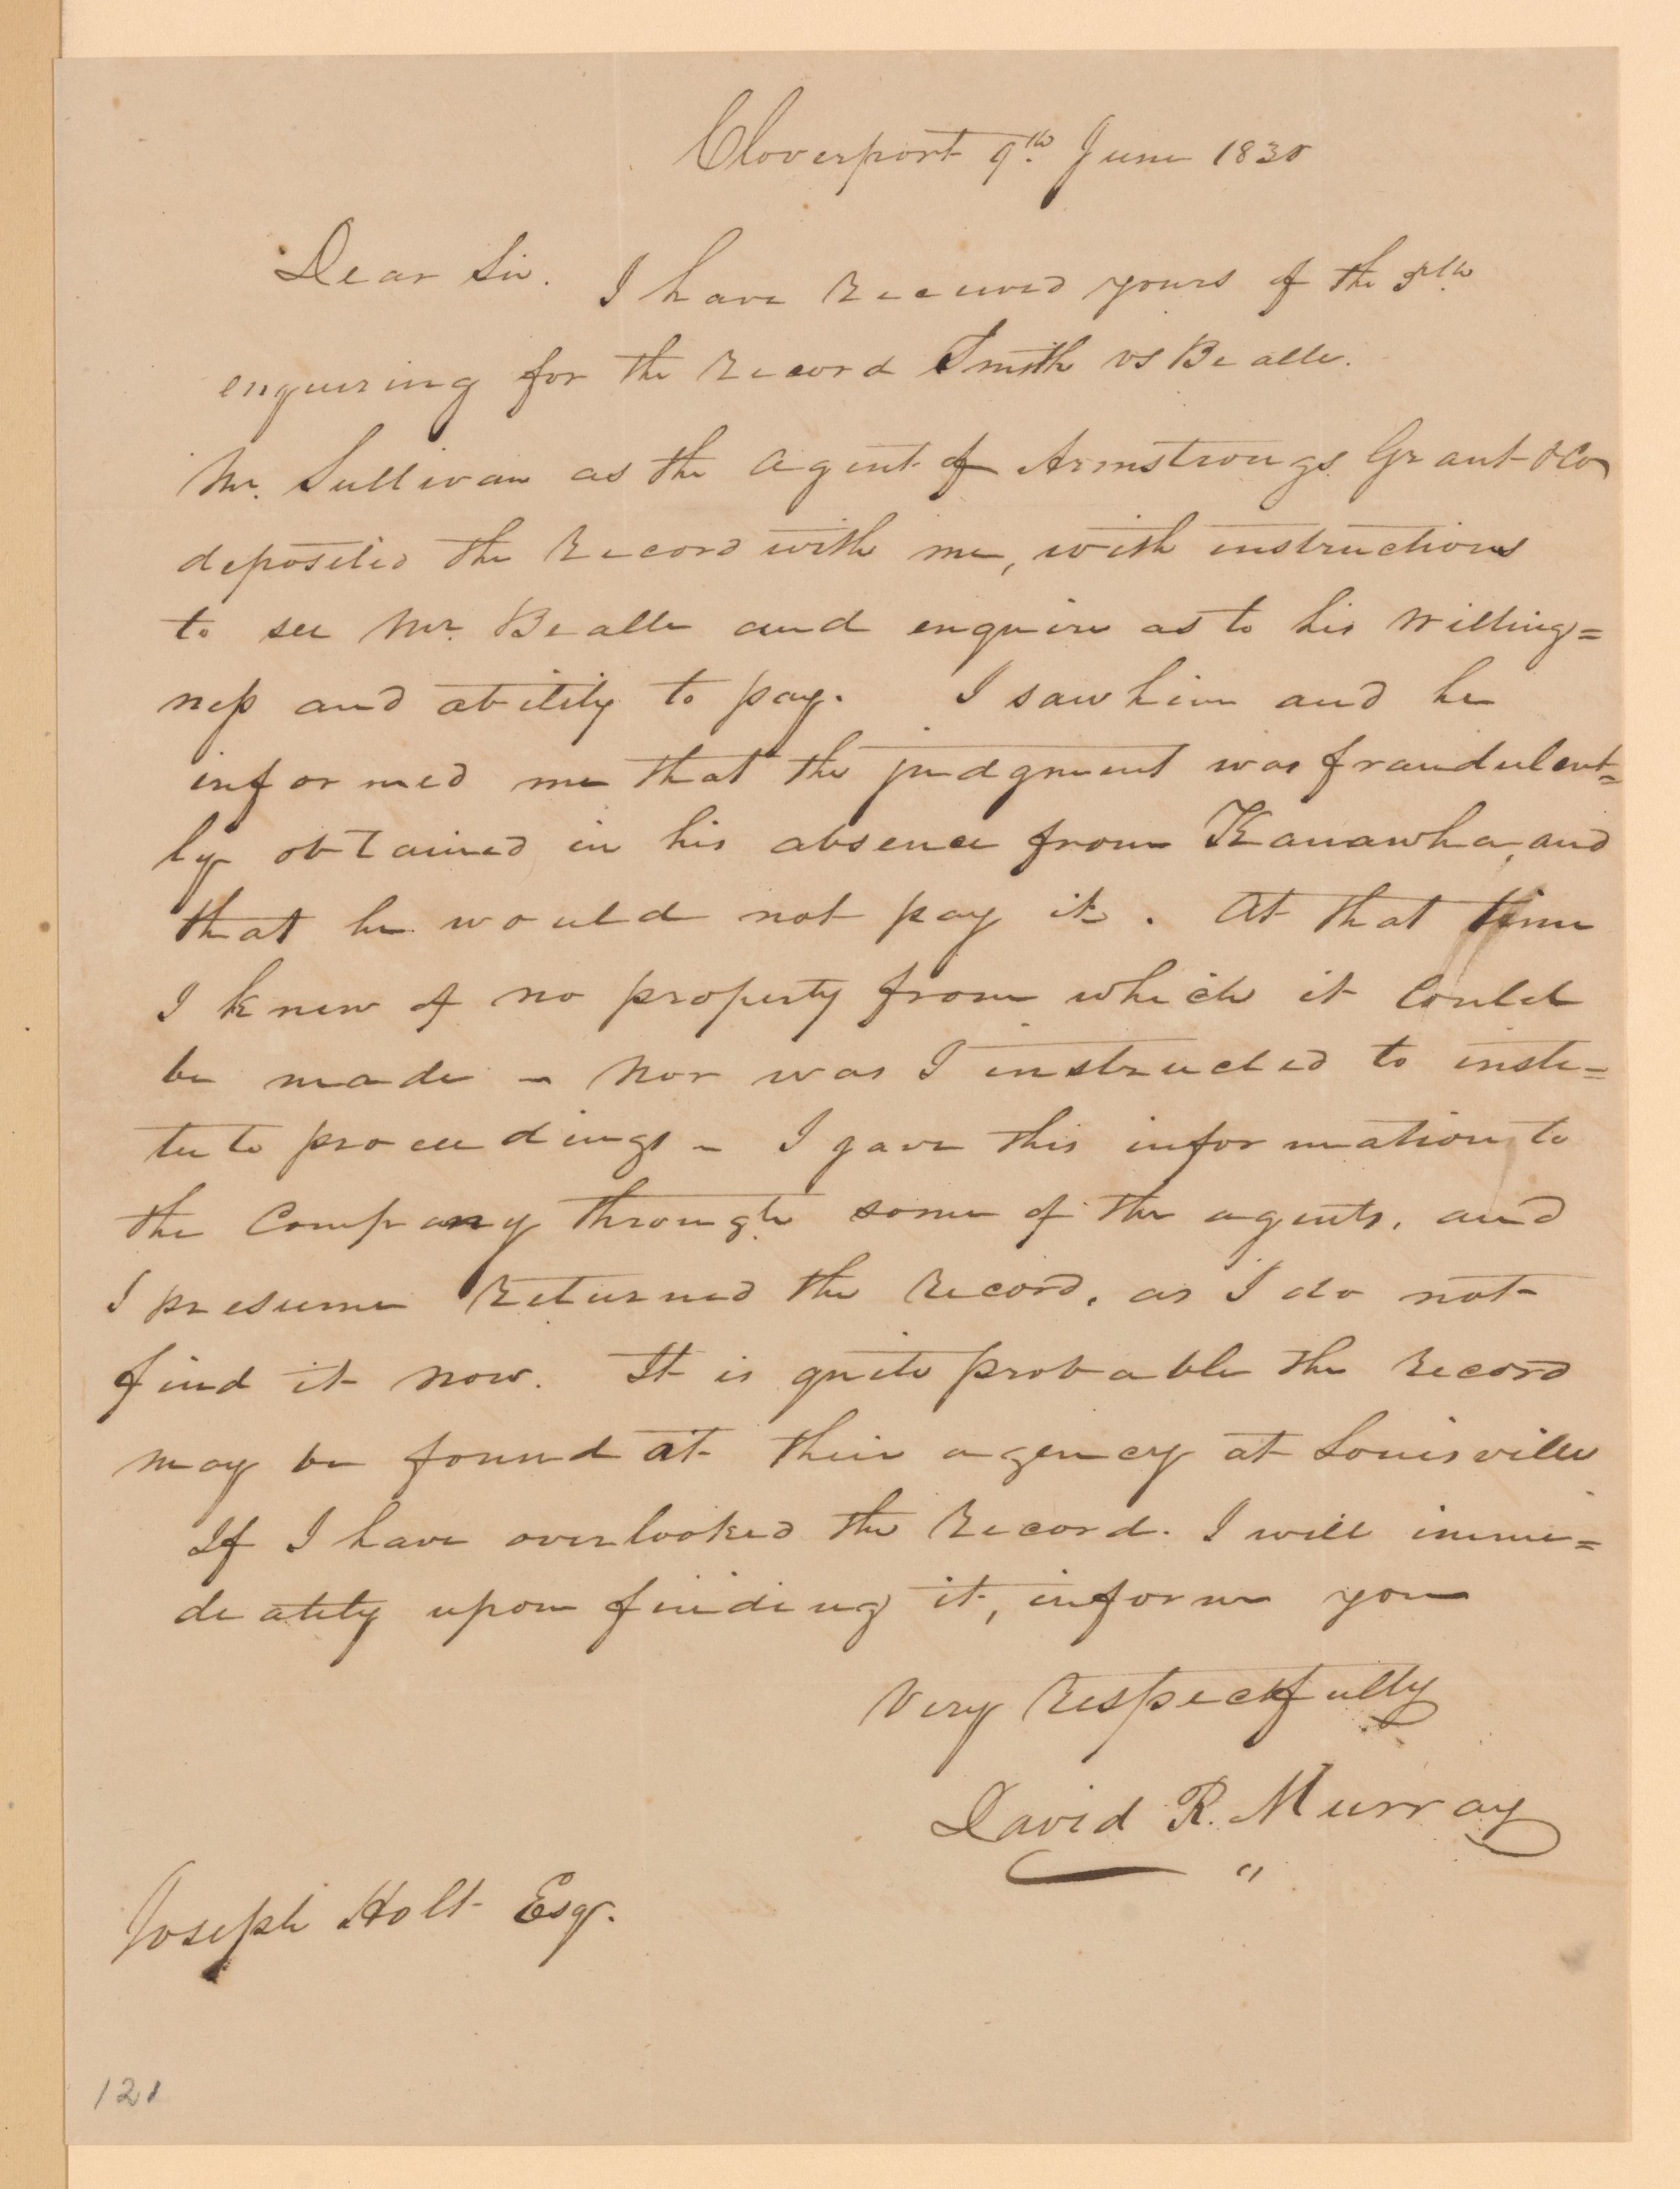 Cloverport 9th June 1830
Dear Sir. I have Received yours of the 5th
enquiring for the Record Smith vs Bealle.
Mr. Sullivan as the agent of Armstrongs Grant & Co
deposited the Record with me, with instructions
to see Mr. Bealle and enquire as to his Willing=
ness and ability to pay. I saw him and he
informed me that the judgment was fraudulent=
ly obtained in his absence from Kanawha, and
that he would not pay it. At that time
I knew of no property from which it Could
be made – Nor was I instructed to insti=
tute proceedings – I gave this information to
the Company through some of the agents, and
I presume Returned the Record, as I do not
find it Now. It is quite probable the Record
may be found at their agency at Louisville
If I have overlooked the Record. I will imme=
diately upon finding it, inform you
Very Respectfully
David R. Murray
"
Joseph Holt Esqr.
121